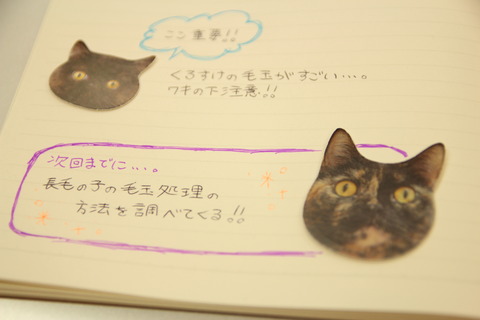 ココ重要!!
くろすけの毛玉がすごい…。
ワキの下注意!!
次回までに…。
長毛の子の毛玉処理の
方法を調べてくる!!